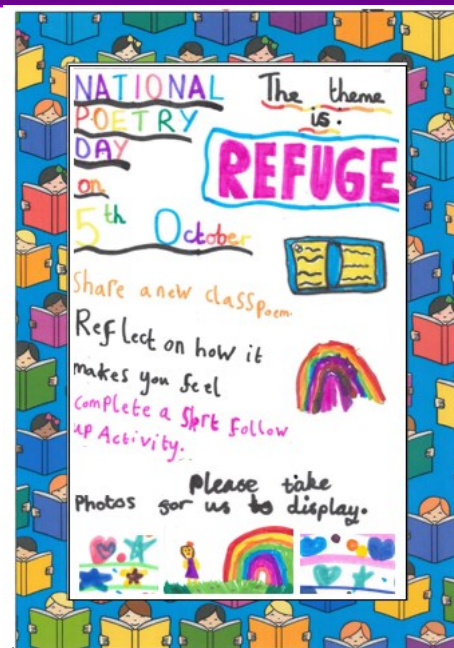 NATIONAL
POETRY
DAY
on
5th October
The theme
is.
REFUGE
Share a new classpoem.
Reflect on how it
makes you feel
complete a Shrt follow
up Activity.
Please take
Photos for us to display.